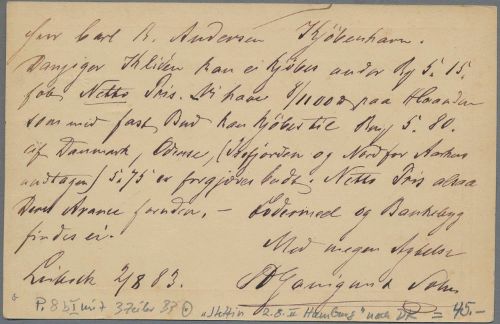 Herr Carl R. Andersen Kjöbenhavn.
Danziger Kliden kan ei kjöbes under Rg 5. 15.
fob Netto Pris. Vi have 8/11000 paa Haanden
som med fast Bud kan kjöbes til Rmg 5. 80.
cif Danmark, Odense, (Isefjorden og Nord for Aarhus
undtagen) 5.75 er forgjæves budt, Netto Pris altsaa
Deres Avance foruden. — Fodermeel og Bankebyg
findes ei. Med megen Agtelse
Lübeck 2/8 83. & Sohn
P. 8 II mit 3 Zeiler "Stettin 2.8. II Hamburg" nach DK = 45.-